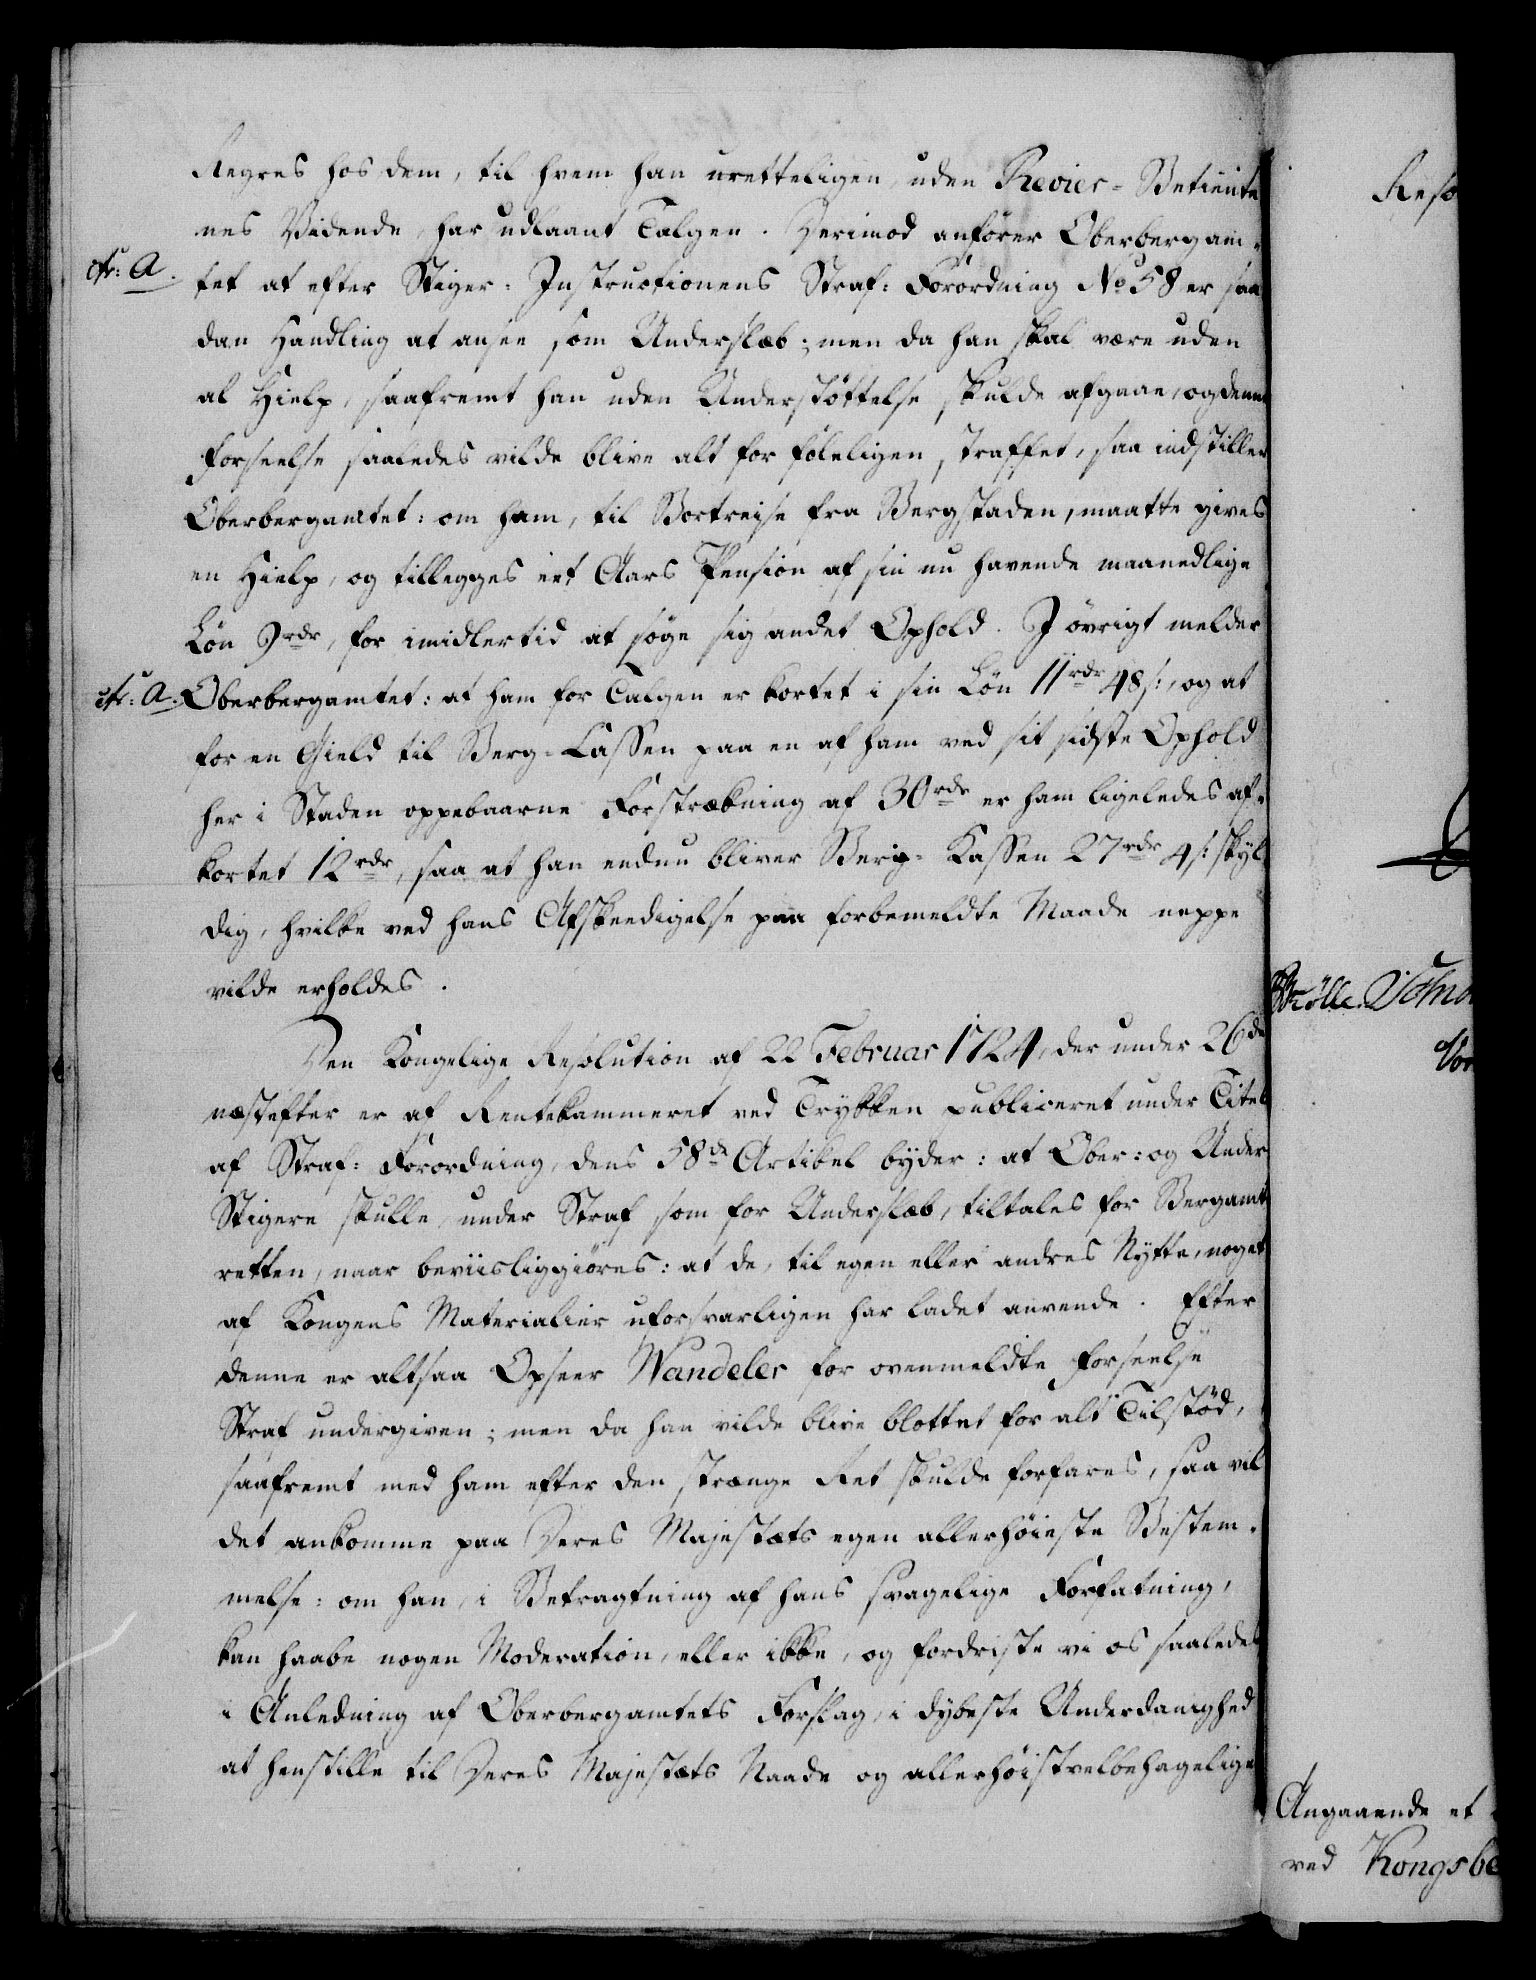 Regres hos dem, til hvem han uretteligen, uden Revier-Betiente
nes Vidende, har udlaant Talgen. Derimod anfører Oberbergam-
cfr: A.
tet at efter Stiger-Instructionens Straf-Forordning No 58 er saa
dan Handling at ansee som Underslæb; men da han skal være uden
al Hielp, saafremt han uden Understøttelse skulde afgaae, og denne
Forseelse saaledes vilde blive alt for føleligen straffet, saa indstiller
Oberbergamtet: om ham, til Bortreise fra Bergstaden, maatte gives
en Hielp, og tillegges eet Aars Pension af sin nu havende maanedlige
Løn 9rdr, for imidlertid at søge sig andet Ophold. I øvrigt melder
cfr: A.
Oberbergamtet: at ham for Talgen er kortet i sin Løn 11rdr 48s:, og at
for en Gield til Berg-Cassen paa en af ham ved sit sidste Ophold
her i Staden oppebaarne Forstrækning af 30rdr er ham ligeledes af-
kortet 12rdr, saa at han endnu bliver Berg-Kassen 27rdr 4s: skyl
dig, hvilke ved hans Afskeedigelse paa forbemeldte Maade neppe
vilde erholdes.
Den Kongelige Resolution af 22 Februar 1724, der under 26de
næstefter er af Rentekammeret ved Trykken publiceret under Titel
af Straf-Forordning, dens 58de Artikel byder: at Ober- og Under
Stigere skulle, under Straf som for Underslæb, tiltales for Bergamts
retten, naar beviisliggiøres: at de, til egen eller andres Nytte, noget
af Kongens Materialier uforsvarligen har ladet anvende. Efter
denne er altsaa Opseer Wandeler for ovenmeldte Forseelse
Straf undergiven; men da han vilde blive blottet for alt Tilstød,
saafremt med ham efter den strænge Ret skulde forfares, saa vil
det ankomme paa Deres Majestæts egen allerhøieste Bestem-
melse: om han, i Betragtning af hans svagelige Forfatning,
kan haabe nogen Moderation, eller ikke, og fordriste vi os saaledes
i Anledning af Oberbergamtets Forslag, i dybeste Underdanighed
at henstille til Deres Majestæts Naade og allerhøistvelbehagelige
Reso
Angaaende et
ved Kongsbe